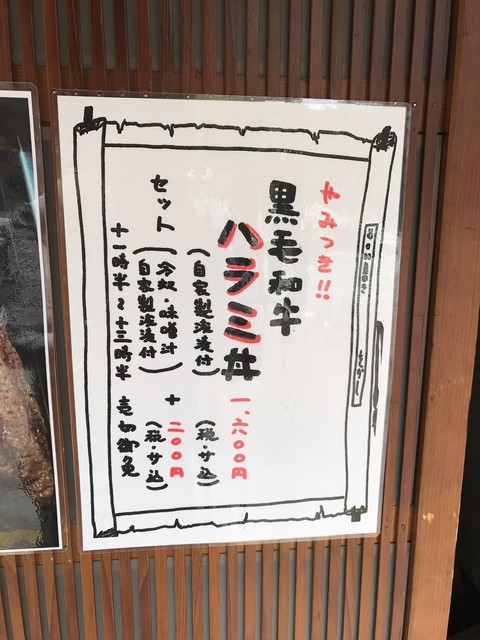 やみつき!!
黒毛和牛
ハラミ丼 一、六〇〇円
(自家製漬漬付) (税・サ込)
セット (冷奴・味噌汁) + 二〇〇円
(自家製漬漬付) (税・サ込)
十一時半〜十三時半 売切御免